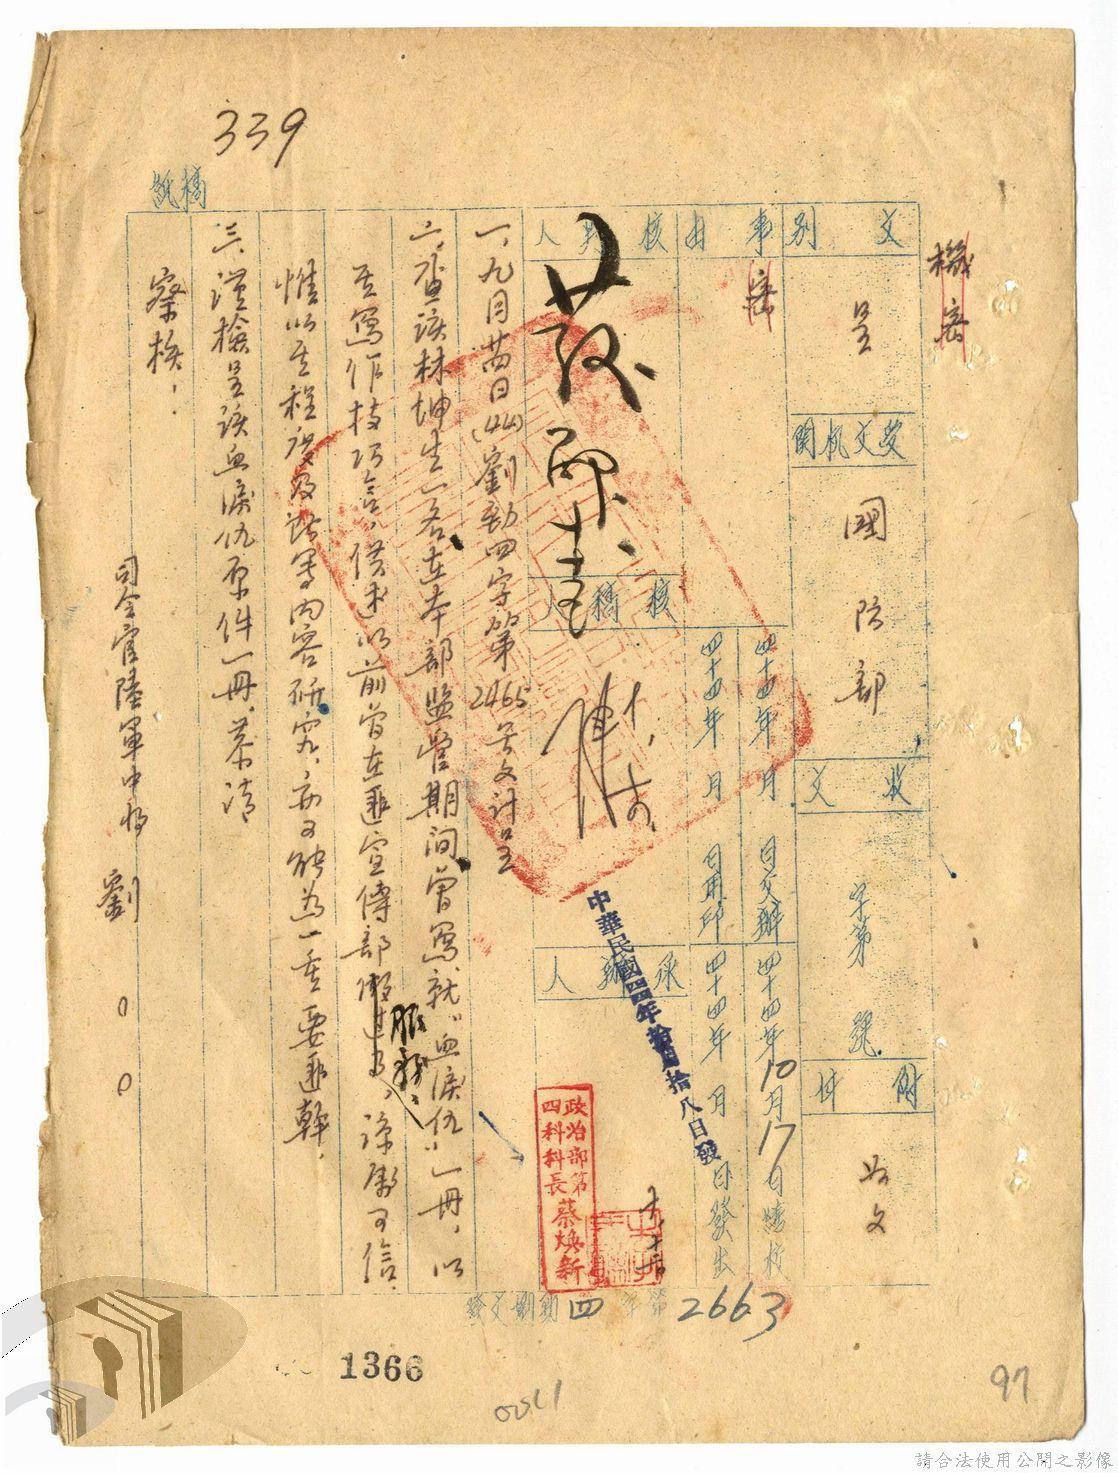 339
稿紙
機密
文別
呈
受文机関
國防部
收文
字第 號
附件
如文
事由
密
四十四年 月 日交辦
四十四年10月17日繕校
四十四年 月 日用印
四十四年 月 日發出
核判人
發
核稿人
承辦人
中華民國四四年拾月拾八日發
政治部第
四科科長蔡煥新
一、九月廿四日(44)劉勁四字第2465号文計呈
二、查該林坤生一名在本部監管期間曾寫就「血淚仇」一冊，以
其寫作技巧言，供述以前曾在匪宣傳部服務，諒屬可信
惟以其程度及所寫內容研究，亦可能為一重要匪幹．
三、謹檢呈該血淚仇原件一冊．恭請
察核：
司令官陸軍中將 劉〇〇
發文劉勁四字第2663
1366
0011
97
請合法使用公開之影像